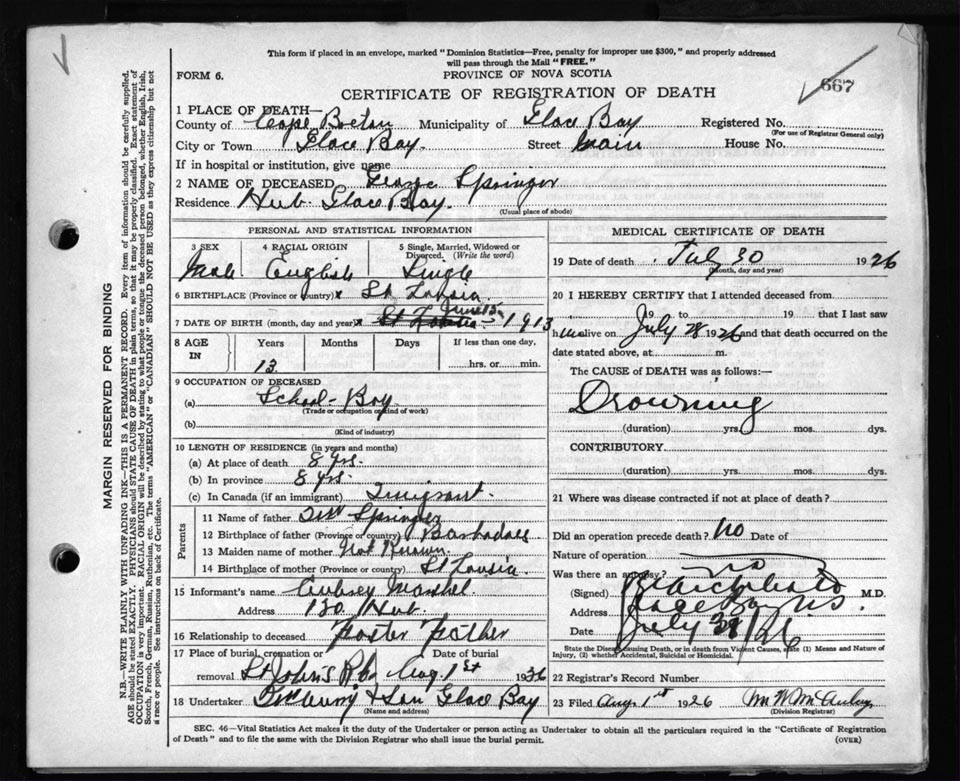 This form if placed in an envelope, marked "Dominion Statistics—Free, penalty for improper use $300," and properly addressed
will pass through the Mail "FREE."
FORM 6.
PROVINCE OF NOVA SCOTIA
667
CERTIFICATE OF REGISTRATION OF DEATH
1 PLACE OF DEATH—
County of Cape Breton Municipality of Glace Bay Registered No.
(For use of Registrar General only)
City or Town Glace Bay. Street Main House No.
If in hospital or institution, give name
2 NAME OF DECEASED George Springer
Residence Hub. Glace Bay.
(Usual place of abode)
PERSONAL AND STATISTICAL INFORMATION
3 SEX 4 RACIAL ORIGIN 5 Single, Married, Widowed or Divorced. (Write the word)
Male English Single
6 BIRTHPLACE (Province or country) x St Lousia
7 DATE OF BIRTH (month, day and year) x June 15 - 1913
8 AGE IN Years Months Days If less than one day,
13 hrs. or min.
9 OCCUPATION OF DECEASED
(a) School-Boy
(Trade or occupation or kind of work)
(b)
(Kind of industry)
10 LENGTH OF RESIDENCE (in years and months)
(a) At place of death 8 yrs.
(b) In province 8 yrs.
(c) In Canada (if an immigrant) Imigrant.
Parents
11 Name of father Springer
12 Birthplace of father (Province or country) Barbadoes
13 Maiden name of mother Not Known.
14 Birthplace of mother (Province or country) St Lousia.
15 Informant's name Aubrey Marshel
Address 130 Hub.
16 Relationship to deceased Foster Father
17 Place of burial, cremation or removal St John's Aug 1st 1926
18 Undertaker & Son Glace Bay
(Name and address)
MEDICAL CERTIFICATE OF DEATH
19 Date of death July 30 1926
(Month, day and year)
20 I HEREBY CERTIFY that I attended deceased from
19 to 19 that I last saw
him alive on July 28 1926 and that death occurred on the
date stated above, at m.
The CAUSE of DEATH was as follows:—
Drowning
(duration) yrs. mos. dys.
CONTRIBUTORY
(duration) yrs. mos. dys.
21 Where was disease contracted if not at place of death?
Did an operation precede death? No Date of
Nature of operation
Was there an autopsy? no
(Signed) M.D.
Address Glace Bay NS
Date July /26
State the Disease causing Death, or in death from Violent Causes, state (1) Means and Nature of
Injury, (2) whether Accidental, Suicidal or Homicidal.
22 Registrar's Record Number
23 Filed Aug 1st 1926
(Division Registrar)
SEC. 46—Vital Statistics Act makes it the duty of the Undertaker or person acting as Undertaker to obtain all the particulars required in the "Certificate of Registration
of Death" and to file the same with the Division Registrar who shall issue the burial permit.
(OVER)
MARGIN RESERVED FOR BINDING
N.B.—WRITE PLAINLY WITH UNFADING INK—THIS IS A PERMANENT RECORD. Every item of information should be carefully supplied.
AGE should be stated EXACTLY. PHYSICIANS should STATE CAUSE OF DEATH in plain terms, so that it may be properly classified. Exact statement of
OCCUPATION is very important. RACIAL ORIGIN will be described by stating to what people or tongue the deceased person belonged, whether English, Irish,
Scotch, French, German, Russian, Ruthenian, etc. The terms "AMERICAN" or "CANADIAN" SHOULD NOT BE USED as they express citizenship but not
a race or people. See instructions on back of Certificate.